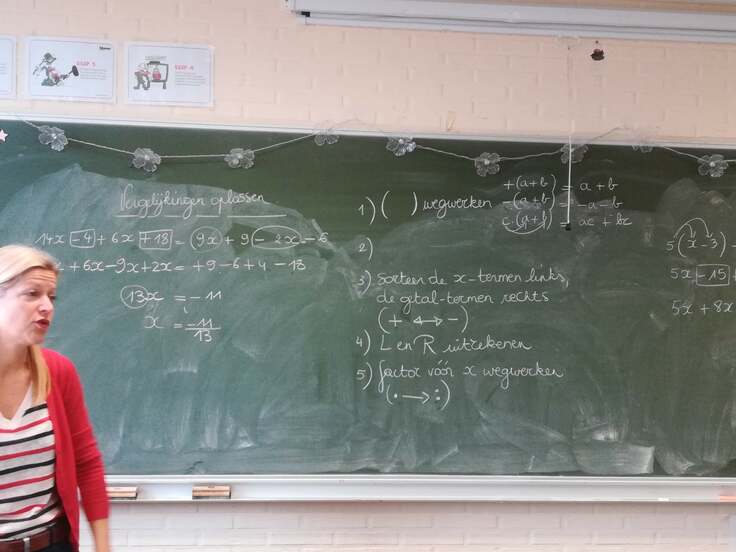 STAP 3
STAP 4
Vergelijkingen oplossen
14x -4 + 6x +18 = 9x + 9 - 2x - 6
+ 6x - 9x + 2x = + 9 - 6 + 4 - 18
13x = -11
x = -11/13
1) ( ) wegwerken
+(a+b) = a + b
-(a+b) = -a - b
c·(a+b) = ac + bc
2)
3) Sorteer de x-termen links,
de getal-termen rechts
(+ ↔ -)
4) L en R uitrekenen
5) factor vóór x wegwerken
(· → :)
5(x - 3) -
5x - 15
5x + 8x